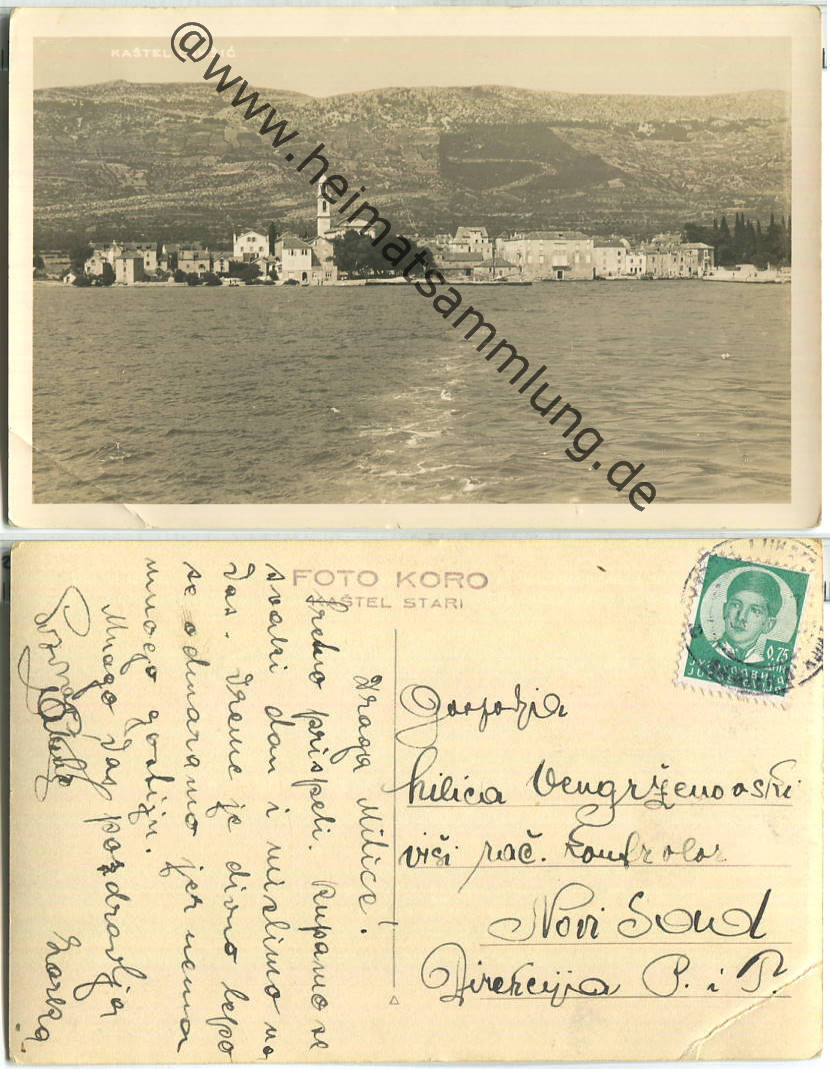 KAŠTEL
@www.heimatsammlung.de
FOTO KORO
KAŠTEL STARI
Draga Milice!
Sretno prispeli. Kupamo se
svaki dan i mislimo na
Vas. Vreme je divno lepo
se odmaramo jer nema
mnogo gostiju.
Mnogo Vas pozdravlja
Zorka
0.75
Gospodja
Milica Vengrženovski
viši rač. kontrolor
Novi Sad
Direkcija P. i T.